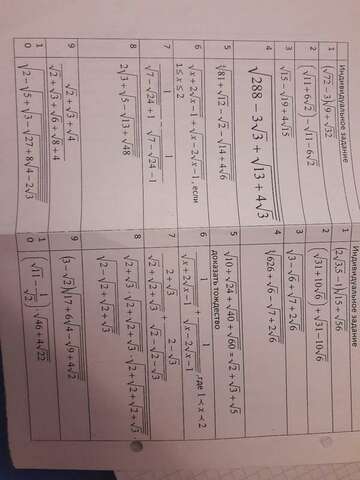 Индивидуальное задание
1 (√72 − 3)√9 + √32
2 (√11 + 6√2) − √11 − 6√2
3 √15 − √19 + 4√15
4 √288 − 3√3 + √13 + 4√3
5 ∜81 + √12 − √2 − √14 + 4√6
6 √x + 2√x − 1 + √x − 2√x − 1, если
1 ≤ x ≤ 2
7 1/(√7 − √24 + 1) − 1/(√7 − √24 − 1)
8 2√3 + √5 − √13 + √48
9 (√2 + √3 + √4)/(√2 + √3 + √6 + √8 + 4)
10 √2 − √5 + √3 − √27 + 8√4 − 2√3
Индивидуальное задание
1 (2√3,5 − 1)√15 + √56
2 (√31 + 10√6) + √31 − 10√6
3 √3 − √6 + √7 + 2√6
4 ∜626 + √6 − √7 + 2√6
5 √10 + √24 + √40 + √60 = √2 + √3 + √5
доказать тождество
6 1/(√x + 2√x − 1) + 1/(√x − 2√x − 1), где 1 < x < 2
7 (2 + √3)/(√2 + √2 + √3) + (2 − √3)/(√2 − √2 − √3)
8 √2 + √3 · √2 + √2 + √3 · √2 + √2 + √2 + √3 ·
√2 − √2 + √2 + √3
9 (3 − √2)√17 + 6√4 − √9 + 4√2
10 (√11 − 1/√2)√46 + 4√22